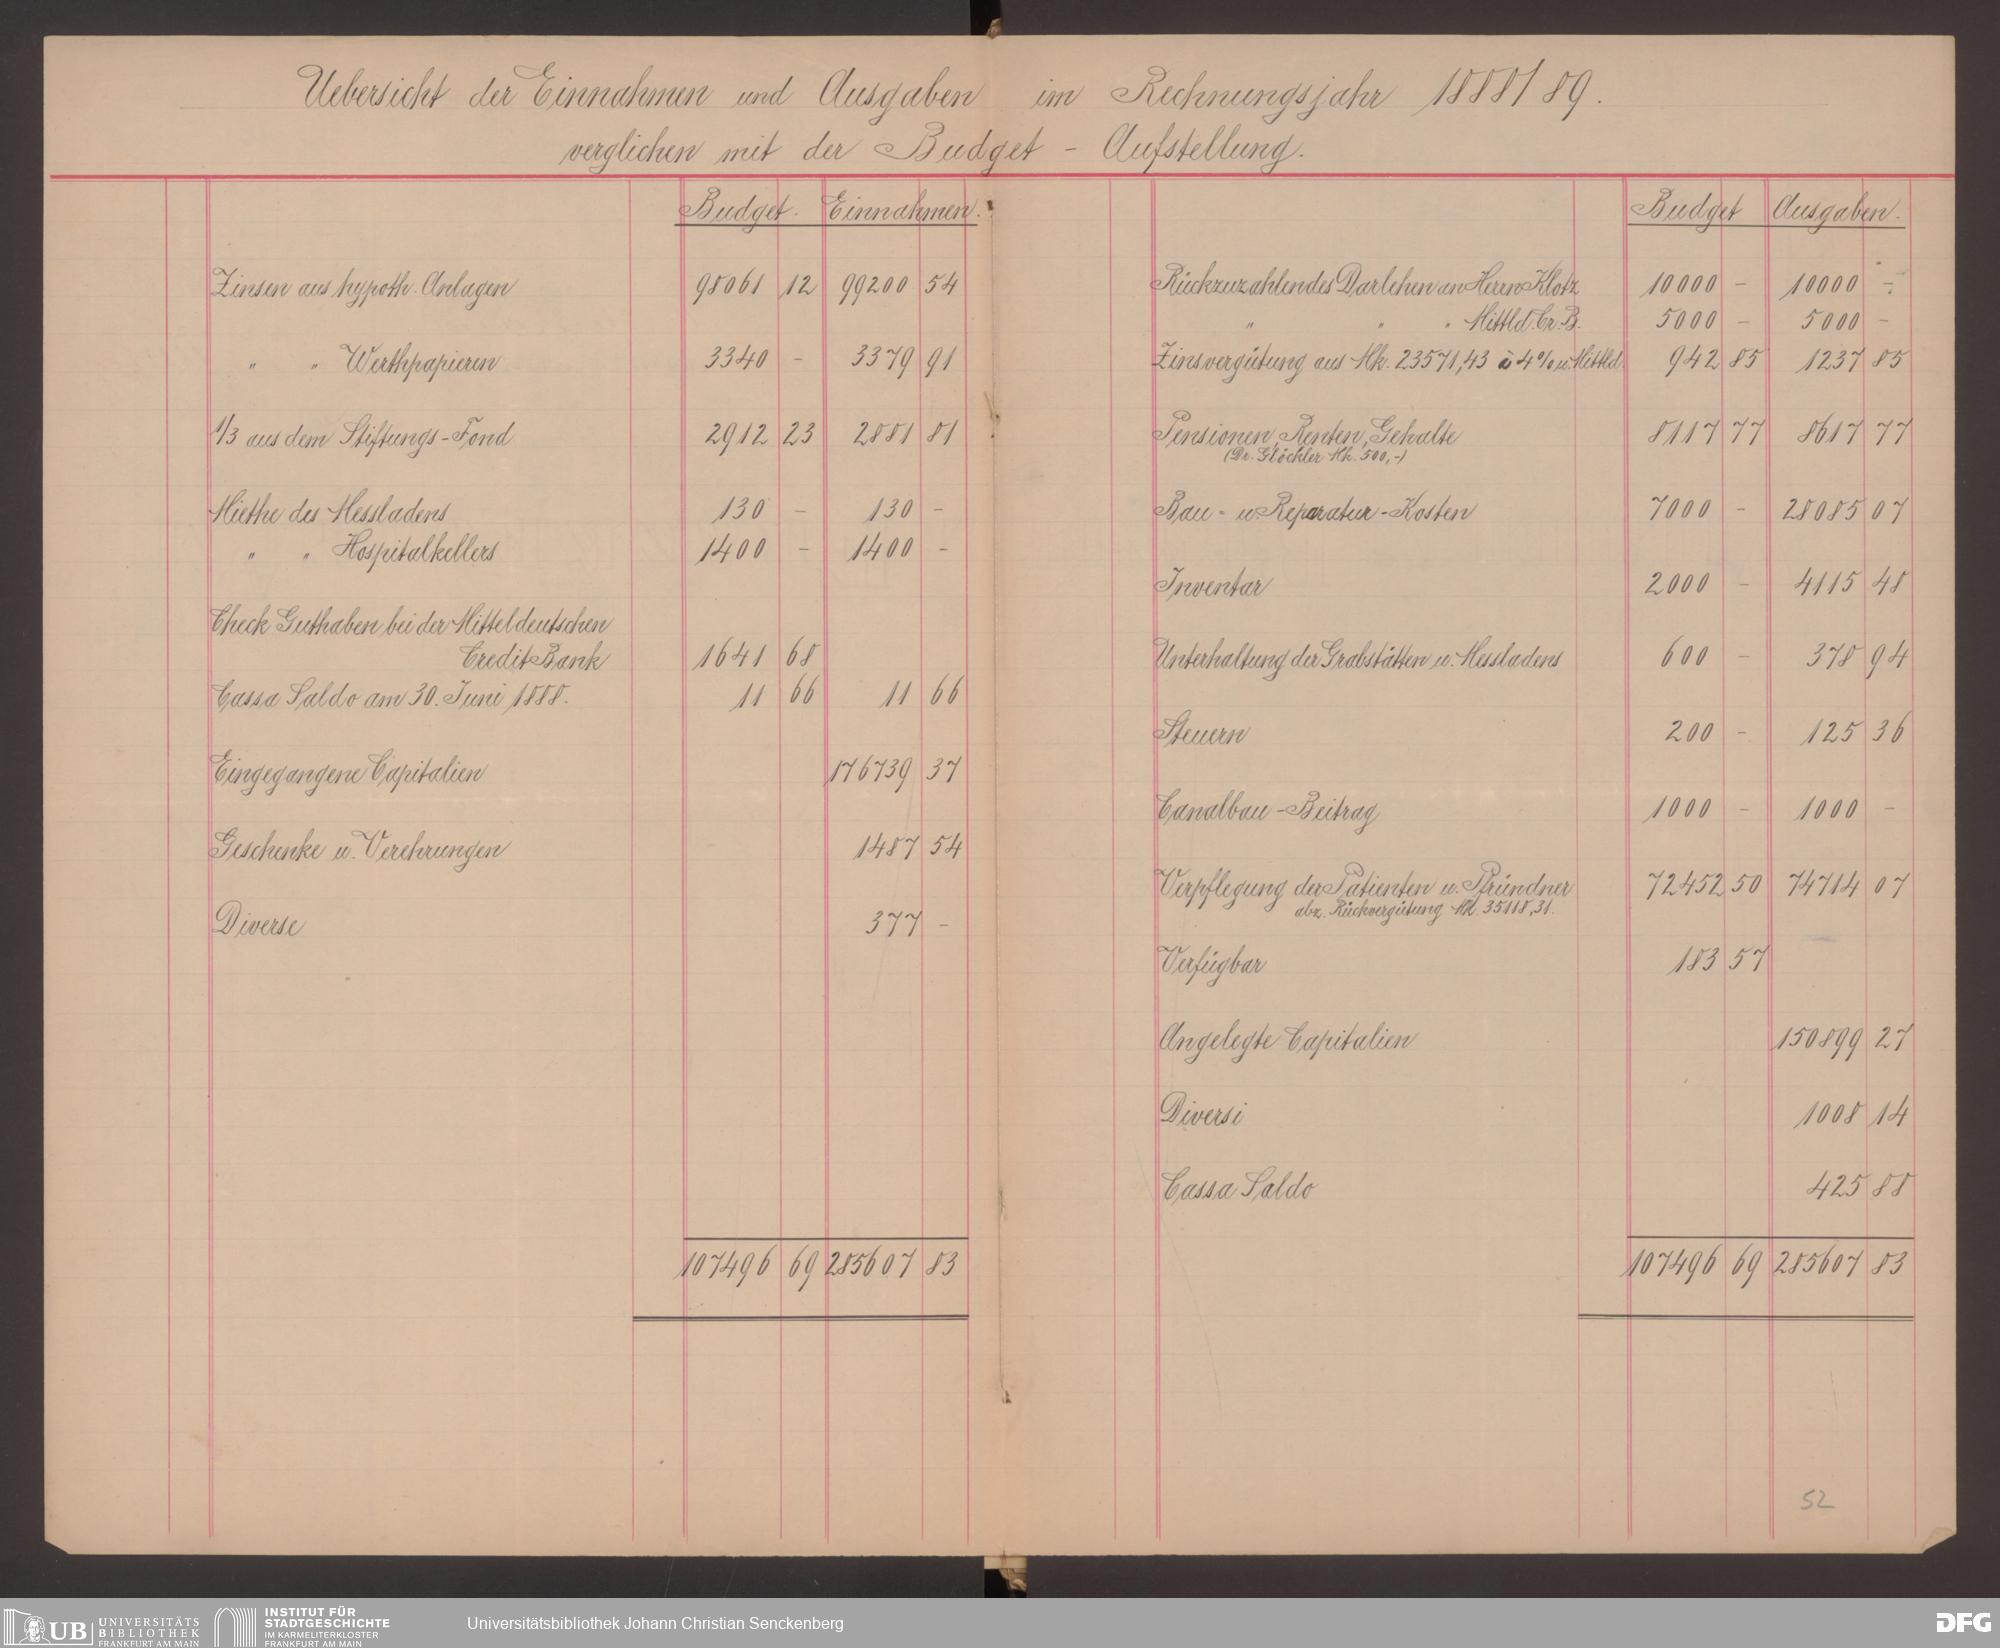 Uebersicht der Einnahmen und Ausgaben im Rechnungsjahr 1888/89.
verglichen mit der Budget - Aufstellung.
Budget. Einnahmen.
Zinsen aus hypoth. Anlagen 98061 12 99200 54
" " Werthpapieren 3340 - 3379 91
1/3 aus dem Stiftungs-Fond 2912 23 2881 81
Miethe des Messladens 130 - 130 -
" " Hospitalkellers 1400 - 1400 -
Check Guthaben bei der Mitteldeutschen
Credit Bank 1641 68
Cassa Saldo am 30. Juni 1888. 11 66 11 66
Eingegangene Capitalien 176739 37
Geschenke u. Verehrungen 1487 54
Diverse 377 -
107496 69 285607 83
Budget Ausgaben.
Rückzuzahlendes Darlehen an Herrn Klotz 10000 - 10000 -
" " " Mittld. Cr. B. 5000 - 5000 -
Zinsvergütung aus Mk. 23571,43 à 4% u. Mittld. 942 85 1237 85
Pensionen, Renten, Gehalte 8117 77 8617 77
(Dr. Glöckler Mk. 500,-)
Bau- u. Reparatur-Kosten 7000 - 28085 07
Inventar 2000 - 4115 48
Unterhaltung der Grabstätten u. Messladens 600 - 378 94
Steuern 200 - 125 36
Canalbau-Beitrag 1000 - 1000 -
Verpflegung der Patienten u. Pfründner 72452 50 74714 07
abz. Rückvergütung Mk. 35118,31.
Verfügbar 183 57
Angelegte Capitalien 150899 27
Diversi 1008 14
Cassa Saldo 425 88
107496 69 285607 83
52
UB UNIVERSITÄTS BIBLIOTHEK FRANKFURT AM MAIN
INSTITUT FÜR STADTGESCHICHTE IM KARMELITERKLOSTER FRANKFURT AM MAIN
Universitätsbibliothek Johann Christian Senckenberg
DFG